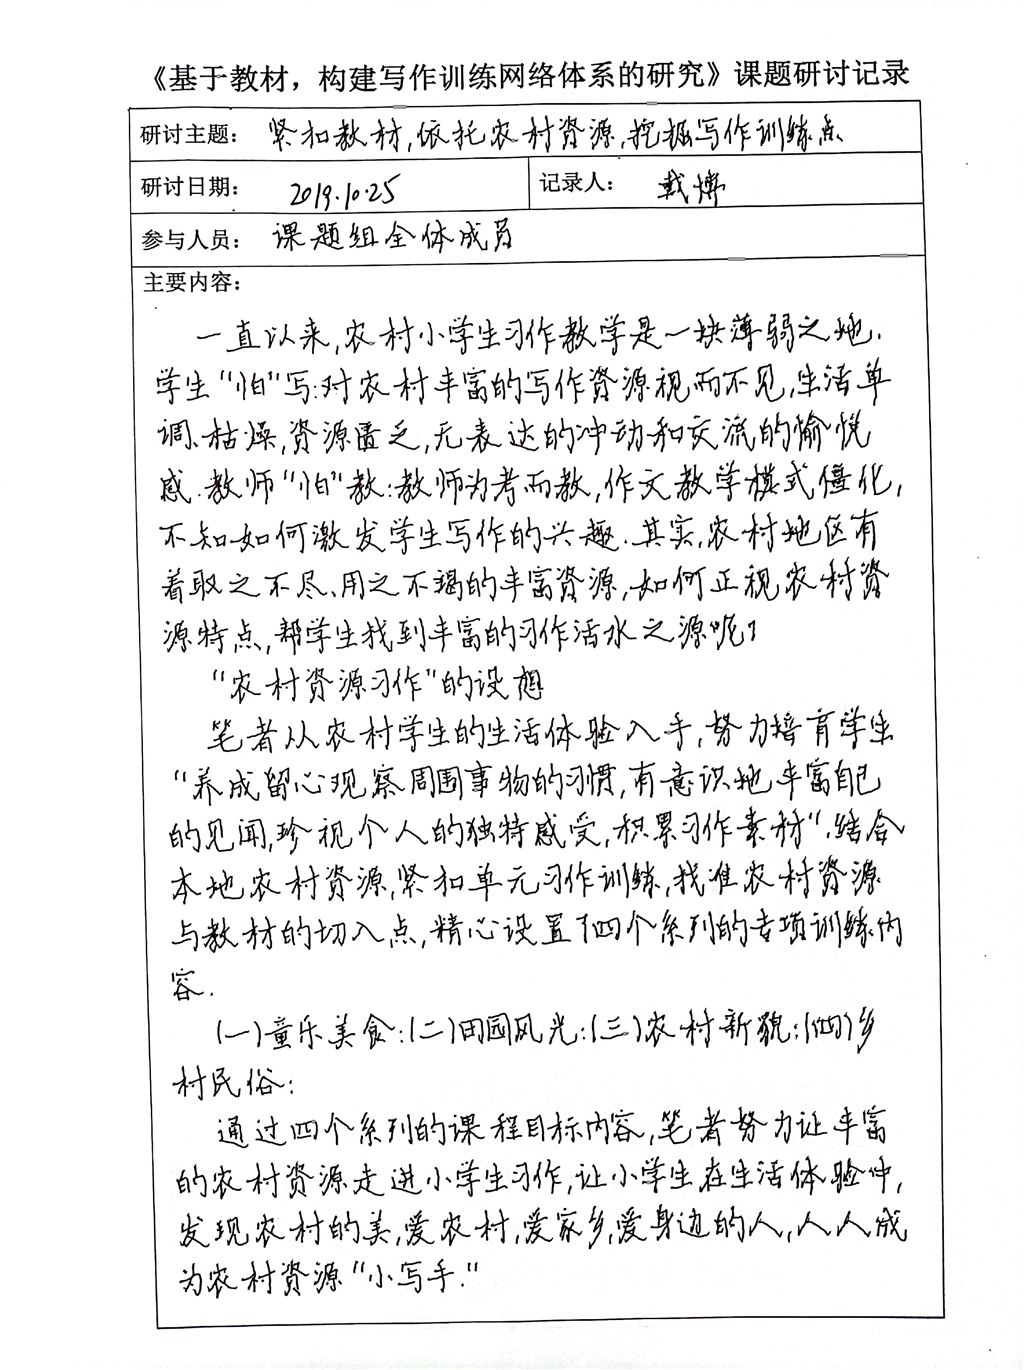 《基于教材，构建写作训练网络体系的研究》课题研讨记录
研讨主题： 紧扣教材,依托农村资源,挖掘写作训练点
研讨日期： 2019.10.25 记录人： 戴博
参与人员： 课题组全体成员
主要内容：
一直以来,农村小学生习作教学是一块薄弱之地.
学生“怕”写:对农村丰富的写作资源视而不见,生活单
调、枯燥,资源匮乏,无表达的冲动和交流的愉悦
感.教师“怕”教:教师为考而教,作文教学模式僵化,
不知如何激发学生写作的兴趣.其实,农村地区有
着取之不尽、用之不竭的丰富资源,如何正视农村资
源特点,帮学生找到丰富的习作活水之源呢?
“农村资源习作”的设想
笔者从农村学生的生活体验入手,努力培育学生
“养成留心观察周围事物的习惯,有意识地丰富自己
的见闻,珍视个人的独特感受,积累习作素材“.结合
本地农村资源,紧扣单元习作训练,找准农村资源
与教材的切入点,精心设置了四个系列的专项训练内
容.
(一)童乐美食;(二)田园风光;(三)农村新貌;(四)乡
村民俗;
通过四个系列的课程目标内容,笔者努力让丰富
的农村资源走进小学生习作,让小学生在生活体验中,
发现农村的美,爱农村,爱家乡,爱身边的人,人人成
为农村资源“小写手."